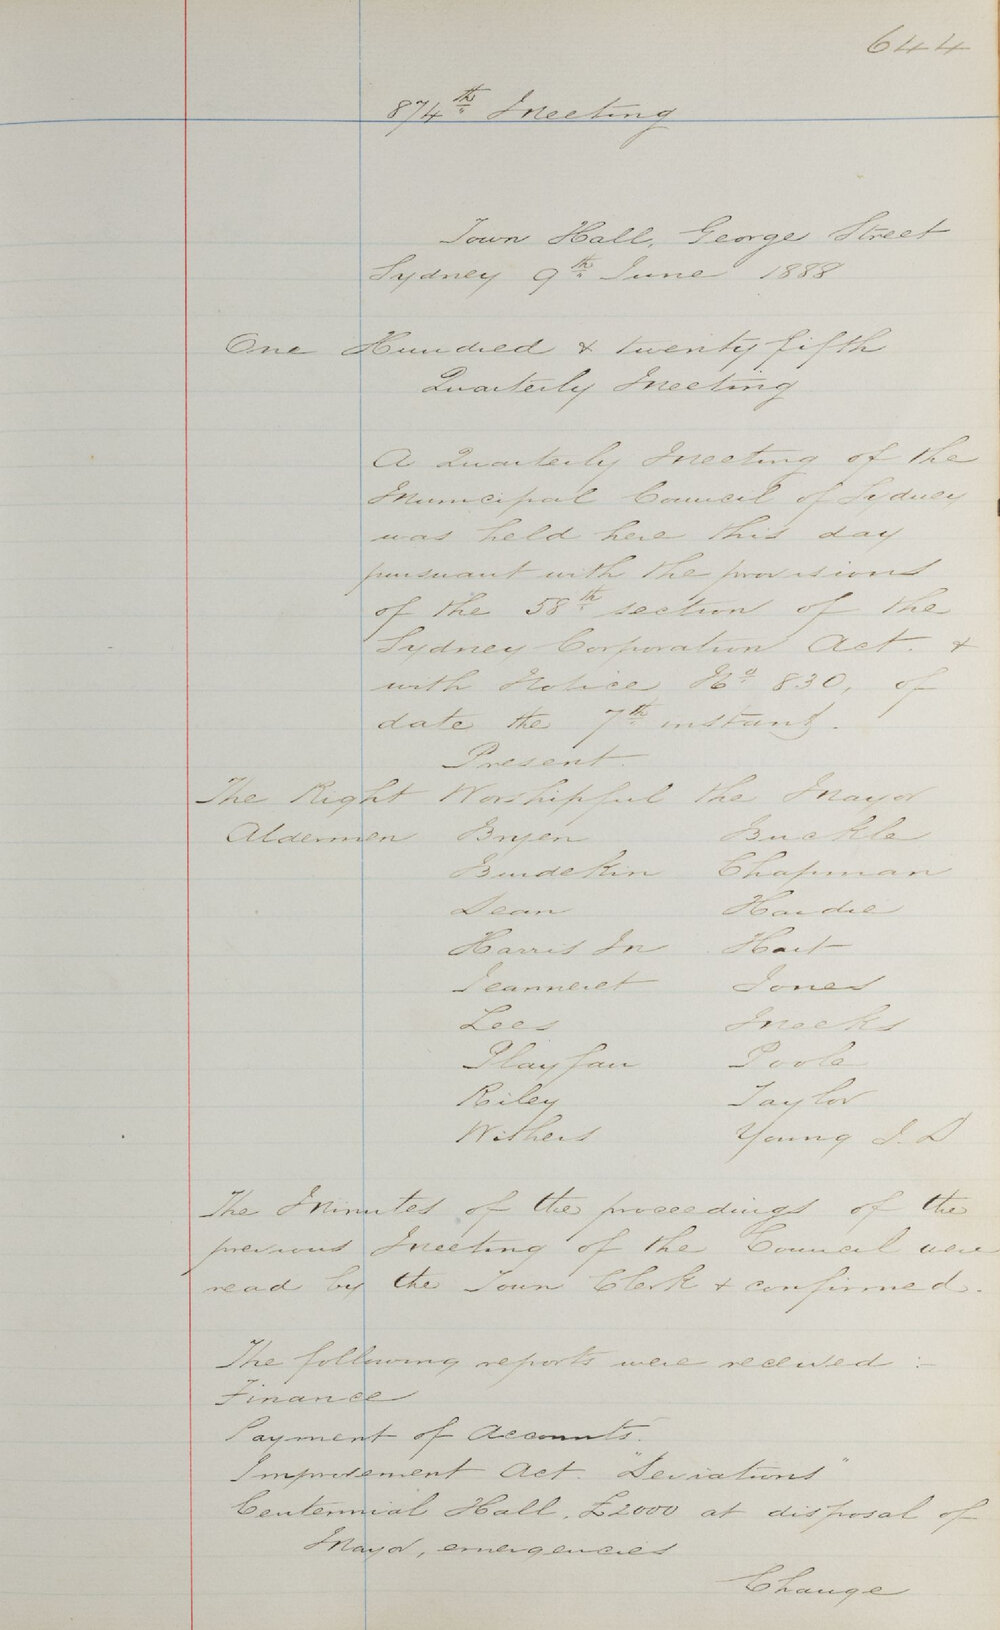 644
874th Meeting
Town Hall, George Street
Sydney 9th June 1888
One Hundred & twenty fifth
Quarterly Meeting
A Quarterly Meeting of the
Municipal Council of Sydney
was held here this day
pursuant with the provisions
of the 58th section of the
Sydney Corporation Act. &
with Notice No 830, of
date the 7th instant.
Present.
The Right Worshipful the Mayor
Aldermen Bryen Buckle
Burdekin Chapman
Dean Hardie
Harris Jn Hart
Jeanneret Jones
Lees Meeks
Playfair Poole
Riley Taylor
Withers Young J. D
The Minutes of the proceedings of the
previous Meeting of the Council were
read by the Town Clerk & confirmed.
The following reports were received :-
Finance
Payment of Accounts.
Improvement Act. "Deviations"
Centennial Hall, £2000 at disposal of
Mayor, emergencies
Change